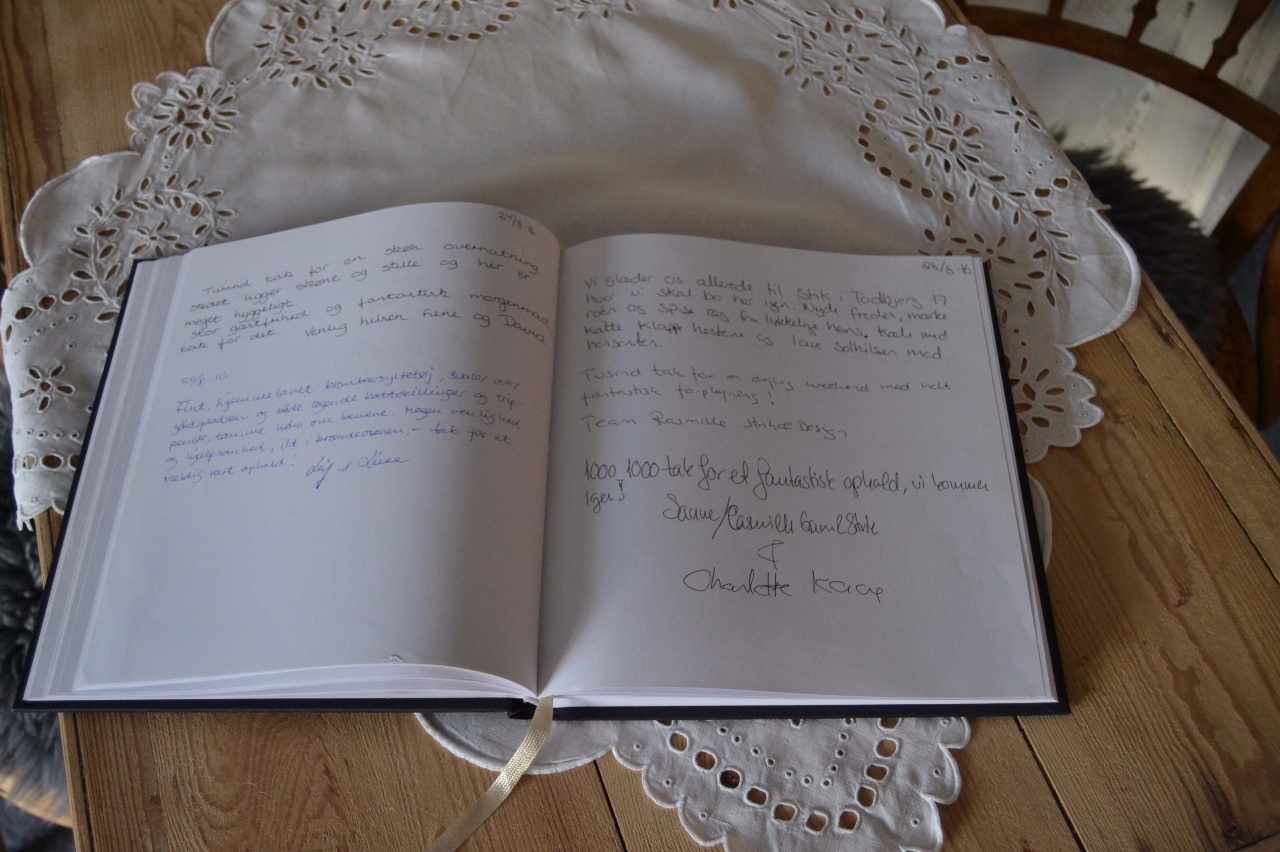 24/8-16
Tusind tak for en skøn overnatning
stedet ligger skønt og stille og her er
meget hyggeligt
stor gæstfrihed og fantastisk morgenmad
tak for det. Venlig hilsen Rene og
Fint, hjemmelavet brombærsyltetøj, svaler over
gårdspladsen og både legende kattekillinger og trip-
pende, tamme høns om benene. Megen venlighed
og hjælpsomhed, ild i brændeovnen, - tak for et
vældig rart ophold!
28/8-16
Vi glæder os allerede til strik i Todbjerg 17
hvor vi skal bo her igen. Nyde freden, mærke
roen og spise æg fra lykkelige høns. Kæle med
katte klappe hestene og lave solhilsen med
hønsenten.
Tusind tak for en dejlig weekend med helt
fantastisk forplejning!
Team Rasmilla strikke Design
1000, 1000 tak for et fantastisk ophold, vi kommer
igen!
Sanne/
&
Charlotte